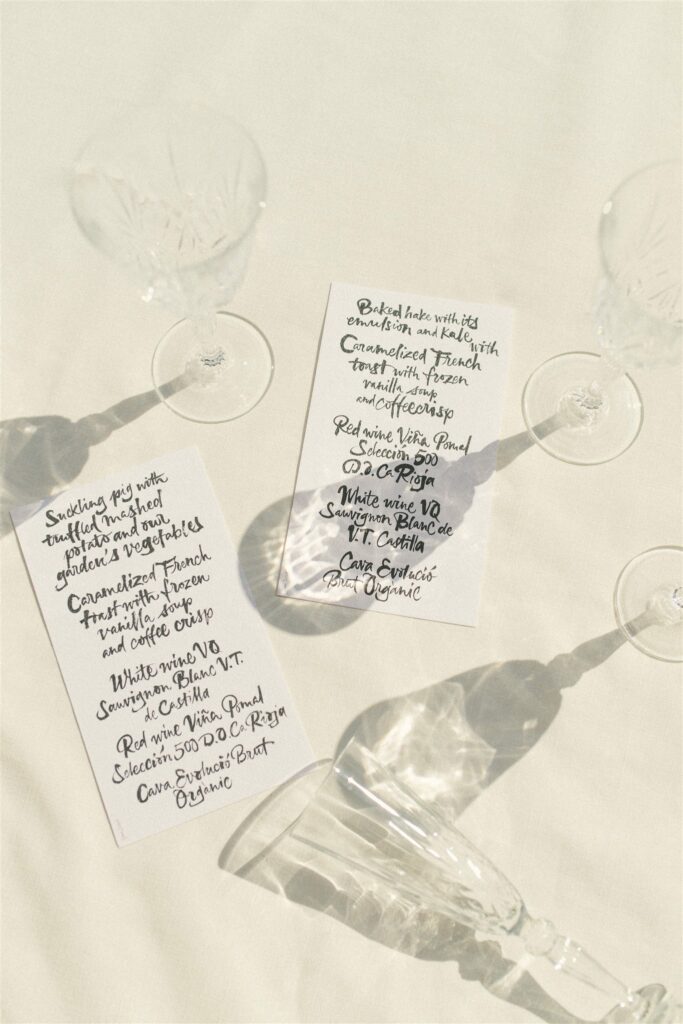 Baked hake with its
emulsion and kale with
Caramelized French
toast with frozen
vanilla soup
and coffeecrisp
Red wine Viña Pomal
Selección 500
D.O.Ca Rioja
White wine VQ
Sauvignon Blanc de
V.T. Castilla
Cava Evolució
Brut Organic
Suckling pig with
truffled mashed
potato and our
garden's vegetables
Caramelized French
toast with frozen
vanilla soup
and coffee crisp
White wine VQ
Sauvignon Blanc V.T.
de Castilla
Red wine Viña Pomal
Selección 500 D.O.Ca Rioja
Cava Evolució Brut
Organic